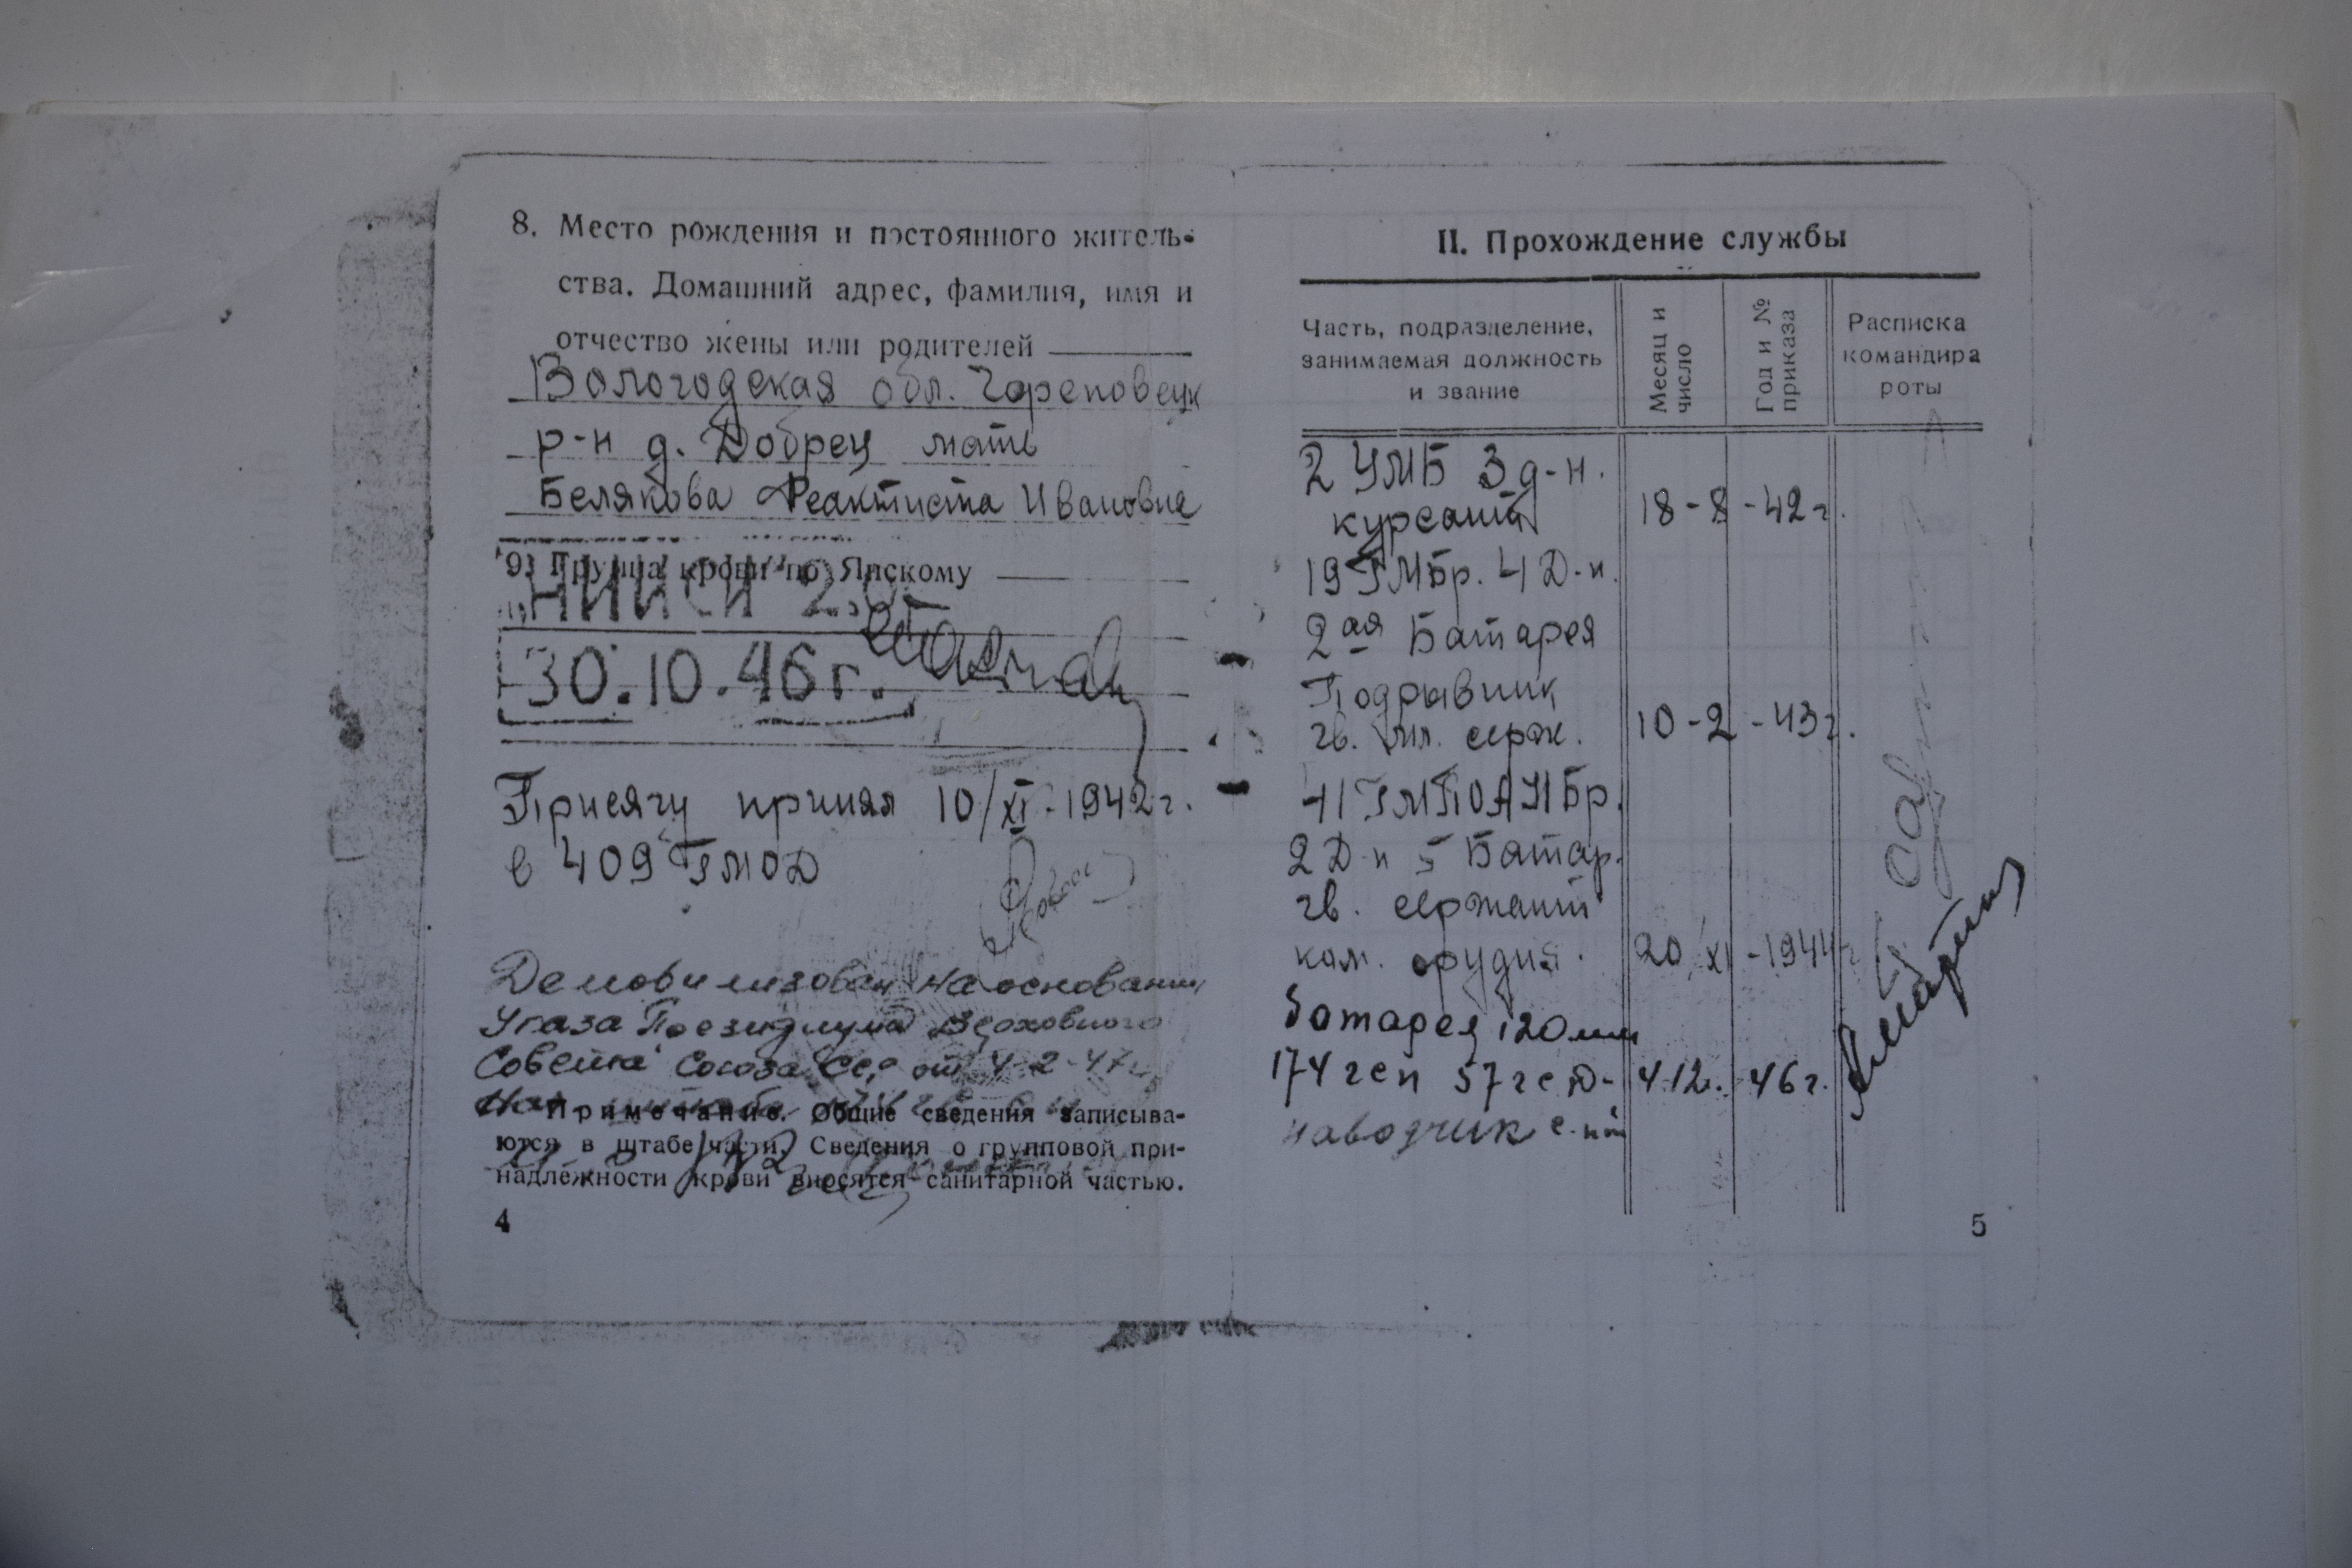 8. Место рождения и постоянного житель-
ства. Домашний адрес, фамилия, имя и
отчество жены или родителей
Вологодская обл. Череповецк
р-н д. Добрец мать
Белякова Феактиста Ивановне
9. Группа крови по Янскому
30.10.46 г.
Присягу принял 10/XI-1942 г.
в 409 ГМОД
Демобилизован на основании
Указа Президиума Верховного
Совета Союза ССР от 4-2-47 г.
Примечание. Общие сведения записыва-
ются в штабе части. Сведения о групповой при-
надлежности крови вносятся санитарной частью.
4
II. Прохождение службы
Часть, подразделение,
занимаемая должность
и звание
Месяц и
число
Год и №
приказа
Расписка
командира
роты
2 УМБ 3 д-н.
курсант 18-8 -42 г.
19 ГМБр. 4 Д-н.
2ая Батарея
Подрывник
гв. мл. серж. 10-2 -43 г.
2 Д-н 5 Батар.
гв. сержант
ком. орудия. 20/XI -1944
батарея 120 мм
174 гсп 57 гсд- 4 12. 46 г.
наводчик
5